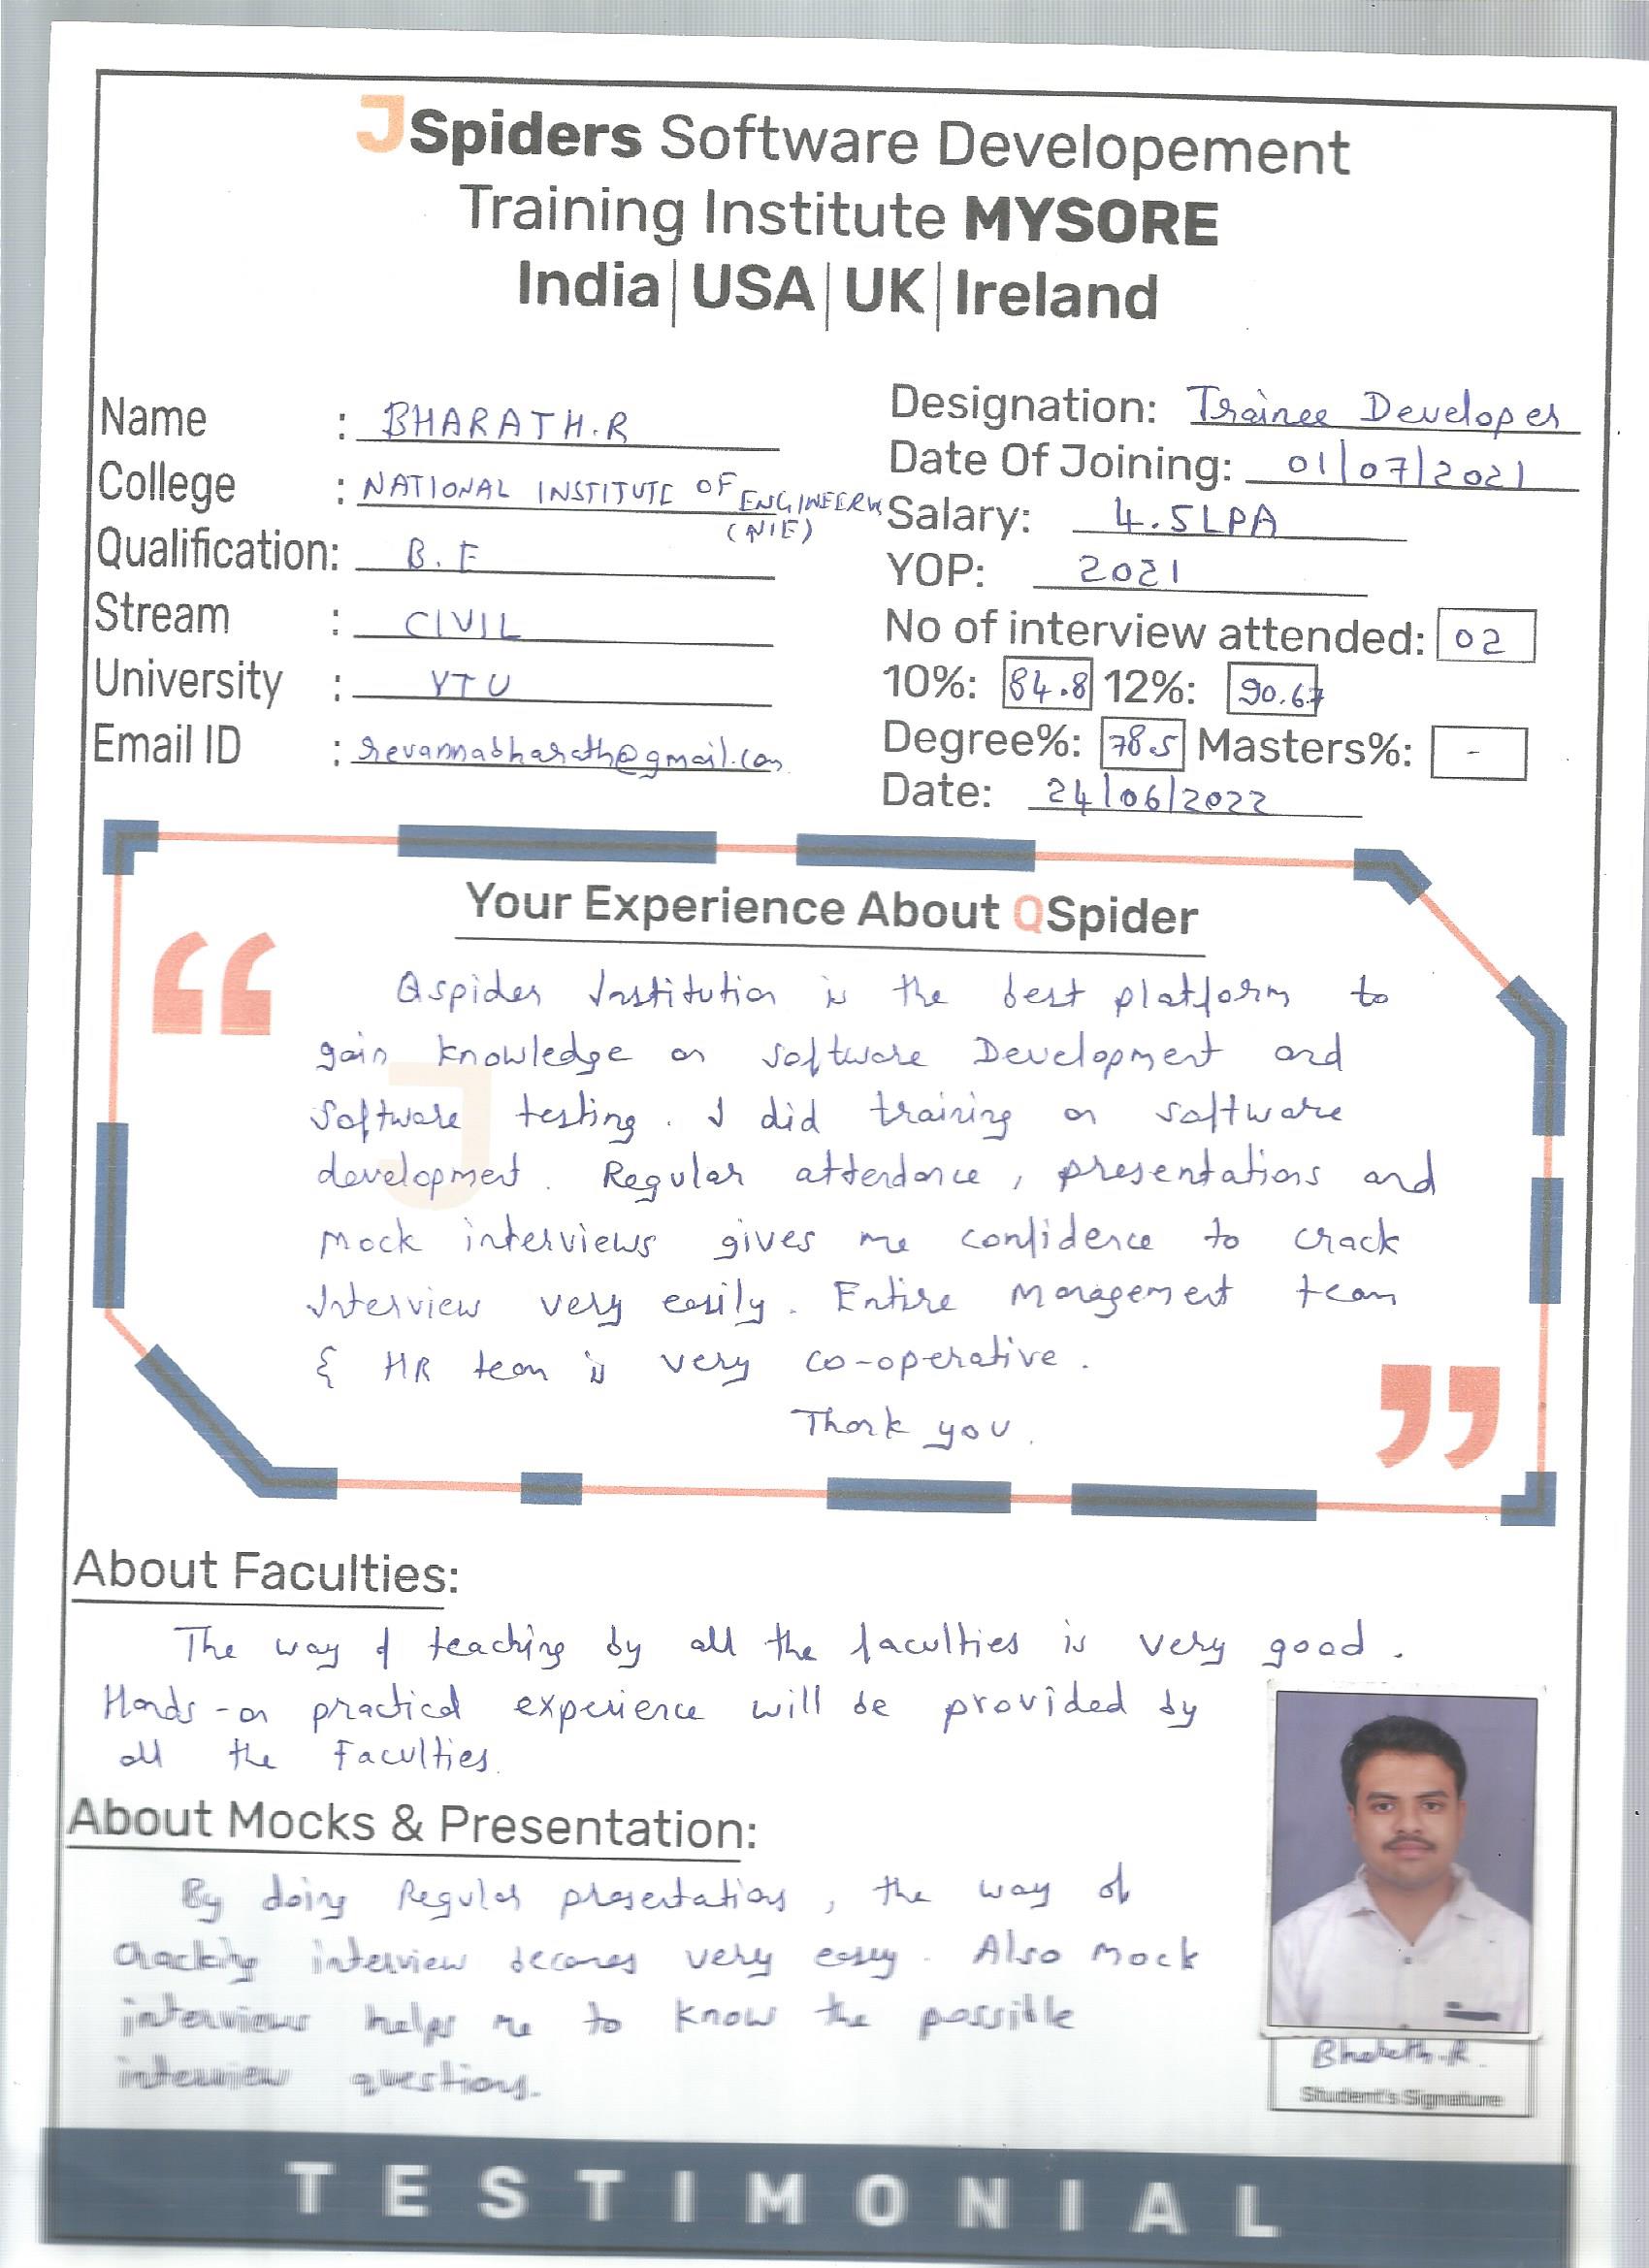 JSpiders Software Developement
Training Institute MYSORE
India|USA|UK|Ireland
Name : BHARATH.R
College : NATIONAL INSTITUTE OF ENGINEERIN
(NIE)
Qualification: B.E
Stream : CIVIL
University : VTU
Email ID : revannabharath@gmail.com
Designation: Trainee Developer
Date Of Joining: 01/07/2021
Salary: 4.5LPA
YOP: 2021
No of interview attended: 02
10%: 84.8 12%: 90.67
Degree%: 78.5 Masters%: -
Date: 24/06/2022
Your Experience About QSpider
“
Qspider Institution is the best platform to
gain knowledge on software Development and
Software testing. I did training on software
development. Regular attendance, presentations and
mock interviews gives me confidence to crack
Interview very easily. Entire Management team
& HR team is very co-operative.
Thank you.
”
About Faculties:
The way of teaching by all the faculties is very good.
Hands-on practical experience will be provided by
all the Faculties.
About Mocks & Presentation:
By doing Regular presentations, the way of
cracking interview becomes very easy. Also Mock
interviews helps me to know the possible
interview questions.
Bharath.R
Student's Signature
TESTIMONIAL